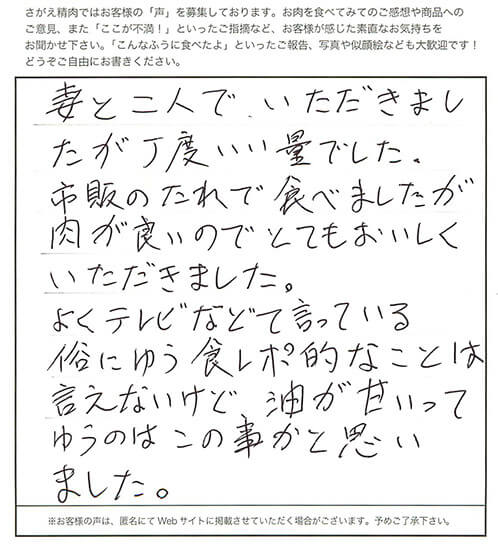 さがえ精肉ではお客様の「声」を募集しております。お肉を食べてみてのご感想や商品への
ご意見、また「ここが不満！」といったご指摘など、お客様が感じた素直なお気持ちを
お聞かせ下さい。「こんなふうに食べたよ」といったご報告、写真や似顔絵なども大歓迎です！
どうぞご自由にお書きください。
妻と二人で、いただきまし
たが丁度いい量でした。
市販のたれで食べましたが
肉が良いのでとてもおいしく
いただきました。
よくテレビなどて言っている
俗にゆう食レポ的なことは
言えないけど 油が甘いって
ゆうのはこの事かと思い
ました。
※お客様の声は、匿名にてWebサイトに掲載させていただく場合がございます。予めご了承下さい。